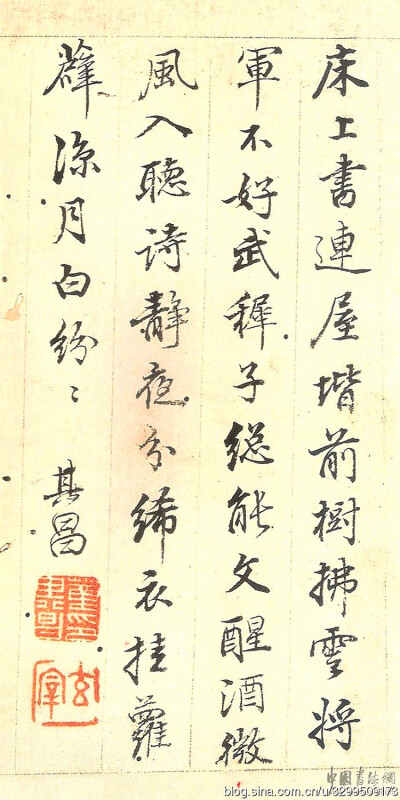 床上書連屋堦前樹拂雲將
軍不好武穉子総能文醒酒微
風入聽詩靜夜分絺衣挂蘿
薜涼月白紛〻
其昌
玄宰
中國書法網
blog.sina.com.cn/u/3299509173